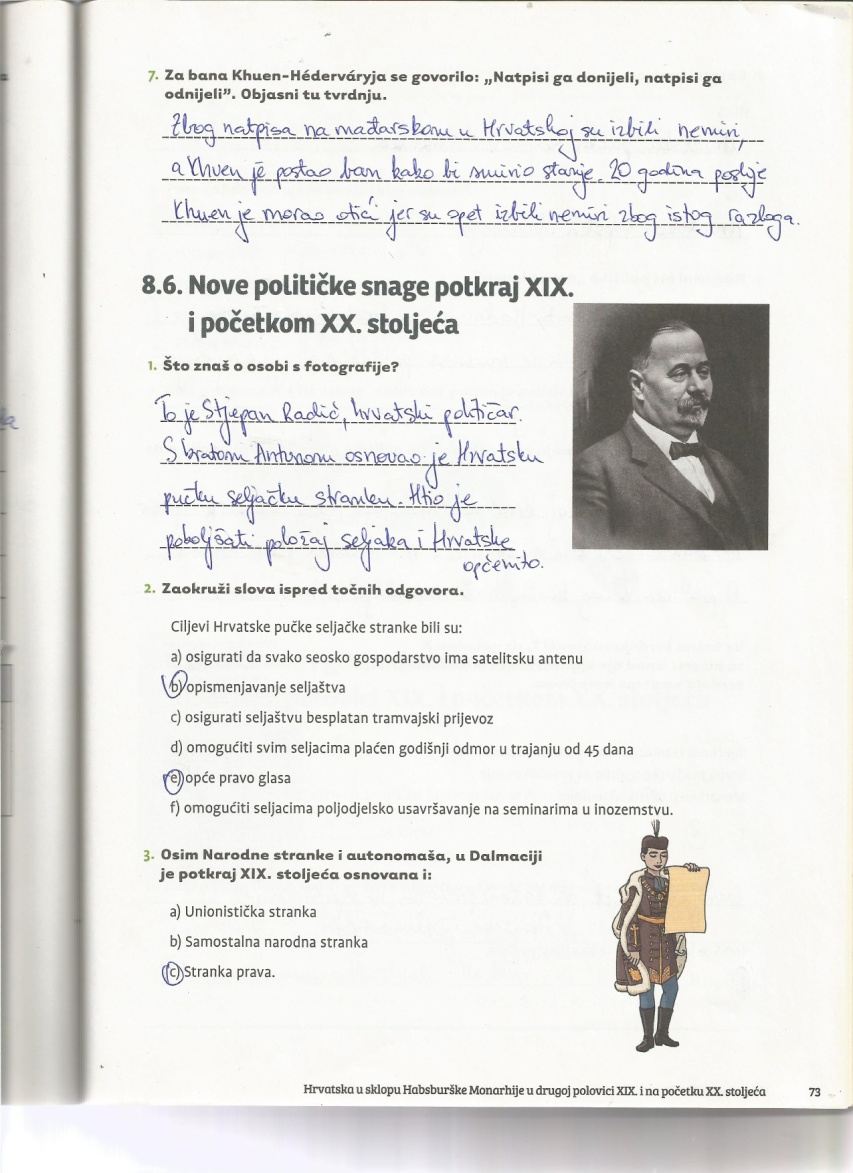 7. Za bana Khuen-Héderváryja se govorilo: „Natpisi ga donijeli, natpisi ga
odnijeli”. Objasni tu tvrdnju.
Zbog natpisa na mađarskom u Hrvatskoj su izbili nemiri,
a Khuen je postao ban kako bi smirio stanje. 20 godina poslije
Khuen je morao otići jer su opet izbili nemiri zbog istog razloga.
8.6. Nove političke snage potkraj XIX.
i početkom XX. stoljeća
1. Što znaš o osobi s fotografije?
To je Stjepan Radić, hrvatski političar.
S bratom Antunom osnovao je Hrvatsku
pučku seljačku stranku. Htio je
poboljšati položaj seljaka i Hrvatske
općenito.
2. Zaokruži slova ispred točnih odgovora.
Ciljevi Hrvatske pučke seljačke stranke bili su:
a) osigurati da svako seosko gospodarstvo ima satelitsku antenu
b) opismenjavanje seljaštva
c) osigurati seljaštvu besplatan tramvajski prijevoz
d) omogućiti svim seljacima plaćen godišnji odmor u trajanju od 45 dana
e) opće pravo glasa
f) omogućiti seljacima poljodjelsko usavršavanje na seminarima u inozemstvu.
3. Osim Narodne stranke i autonomaša, u Dalmaciji
je potkraj XIX. stoljeća osnovana i:
a) Unionistička stranka
b) Samostalna narodna stranka
c) Stranka prava.
Hrvatska u sklopu Habsburške Monarhije u drugoj polovici XIX. i na početku XX. stoljeća 73